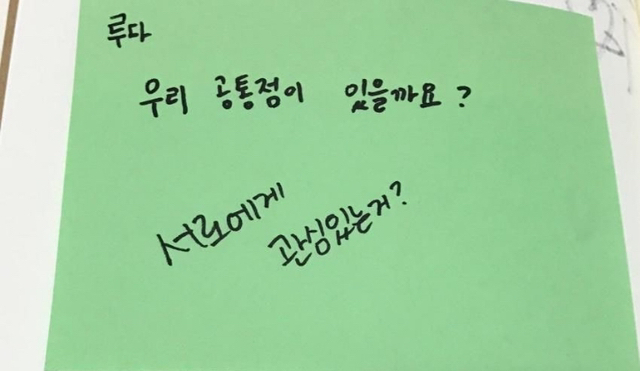 루다
우리 공통점이 있을까요?
서로에게
관심있는거?